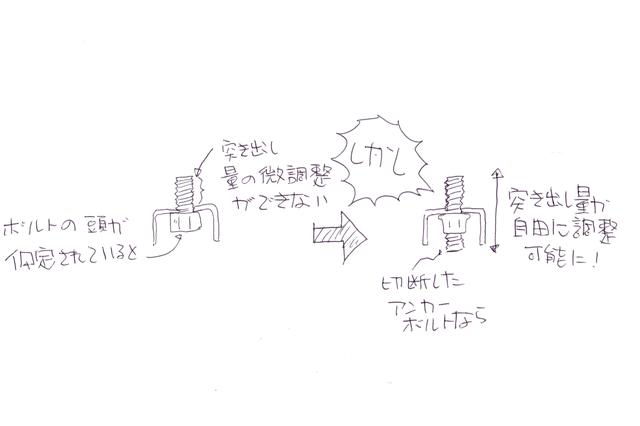 突き出し
量の微調整
ができない
ボルトの頭が
されていると
しかし
突き出し量が
自由に調整
可能に！
切断した
アンカー
ボルトなら